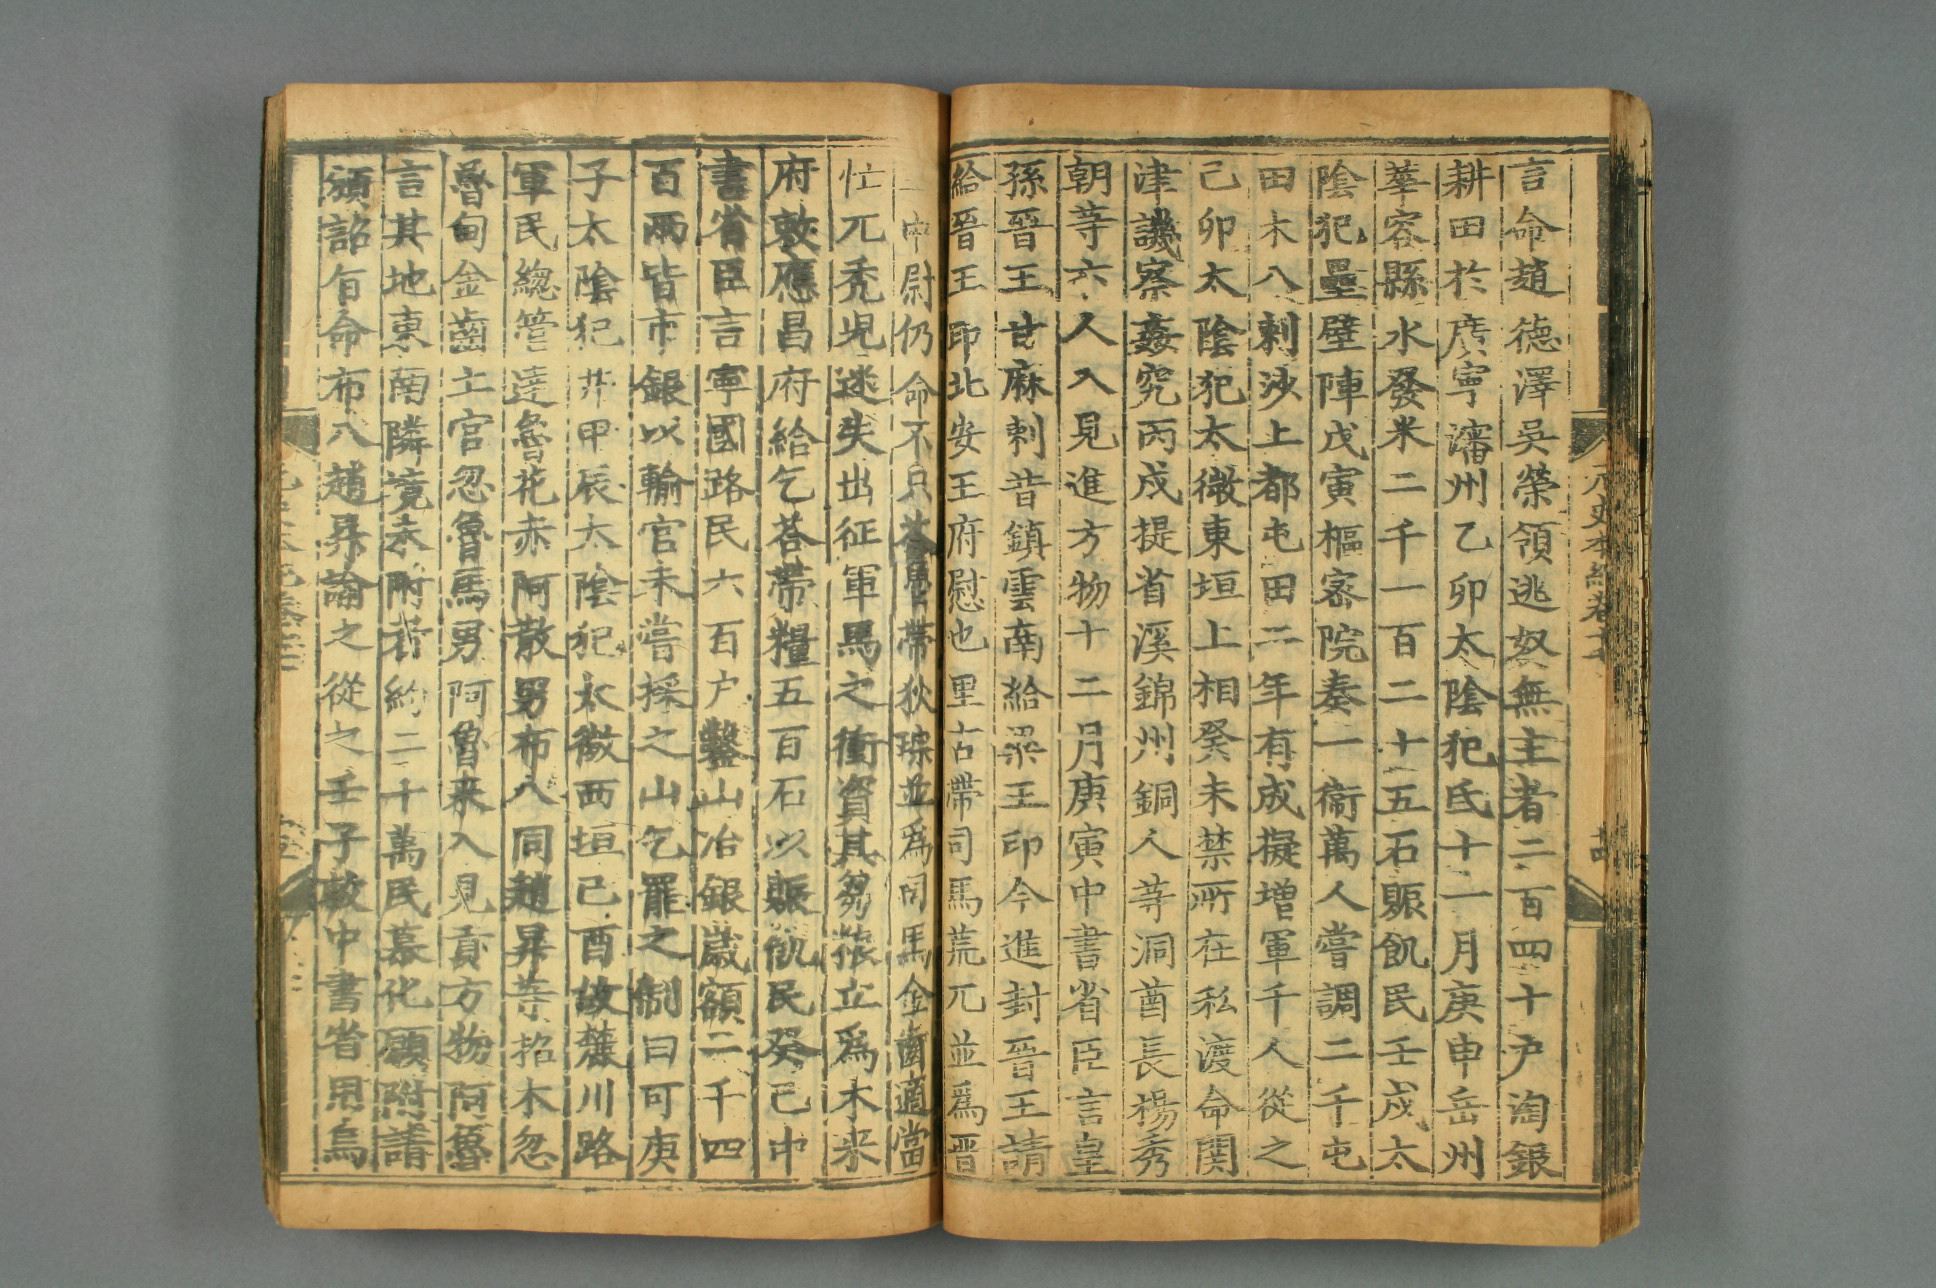 言命趙德澤吳榮領逃奴無主者二百四十户淘銀
耕田於廣寧瀋州乙卯太陰犯氐十一月庚申岳州
華容縣水發米二千一百二十五石賑飢民壬戌太
陰犯壘壁陣戊寅樞密院奏一衞萬人嘗調二千屯
田木八剌沙上都屯田二年有成擬增軍千人從之
己卯太陰犯太微東垣上相癸未禁所在私渡命関
津譏察姦宄丙戌提省溪錦州銅人等洞酋長楊秀
朝等六人入見進方物十二月庚寅中書省臣言皇
孫晉王甘麻剌昔鎮雲南給梁王印今進封晉王請
給晉王印北安王府慰也里古帶司馬荒兀並爲晉
中尉仍命不只荅魯帶狄琮並爲司馬金齒適當
忙兀禿兒迷失出征軍馬之衝資其芻粮立爲木来
府敦應昌府給乞荅帶糧五百石以賑飢民癸巳中
書省臣言寧國路民六百户鑿山冶銀歲額二千四
百兩皆市銀以輸官未嘗採之山乞罷之制曰可庚
子太陰犯井甲辰太陰犯太微西垣己酉故麓川路
軍民總管達魯花赤阿散男布八同趙昇等招木忽
魯甸金齒土官忽魯馬男阿魯来入見貢方物阿魯
言其地東南隣境未附者約二千萬民慕化願附請
頒詔旨命布八趙昇諭之從之壬子敦中書省用烏
元史本紀卷十七
十四